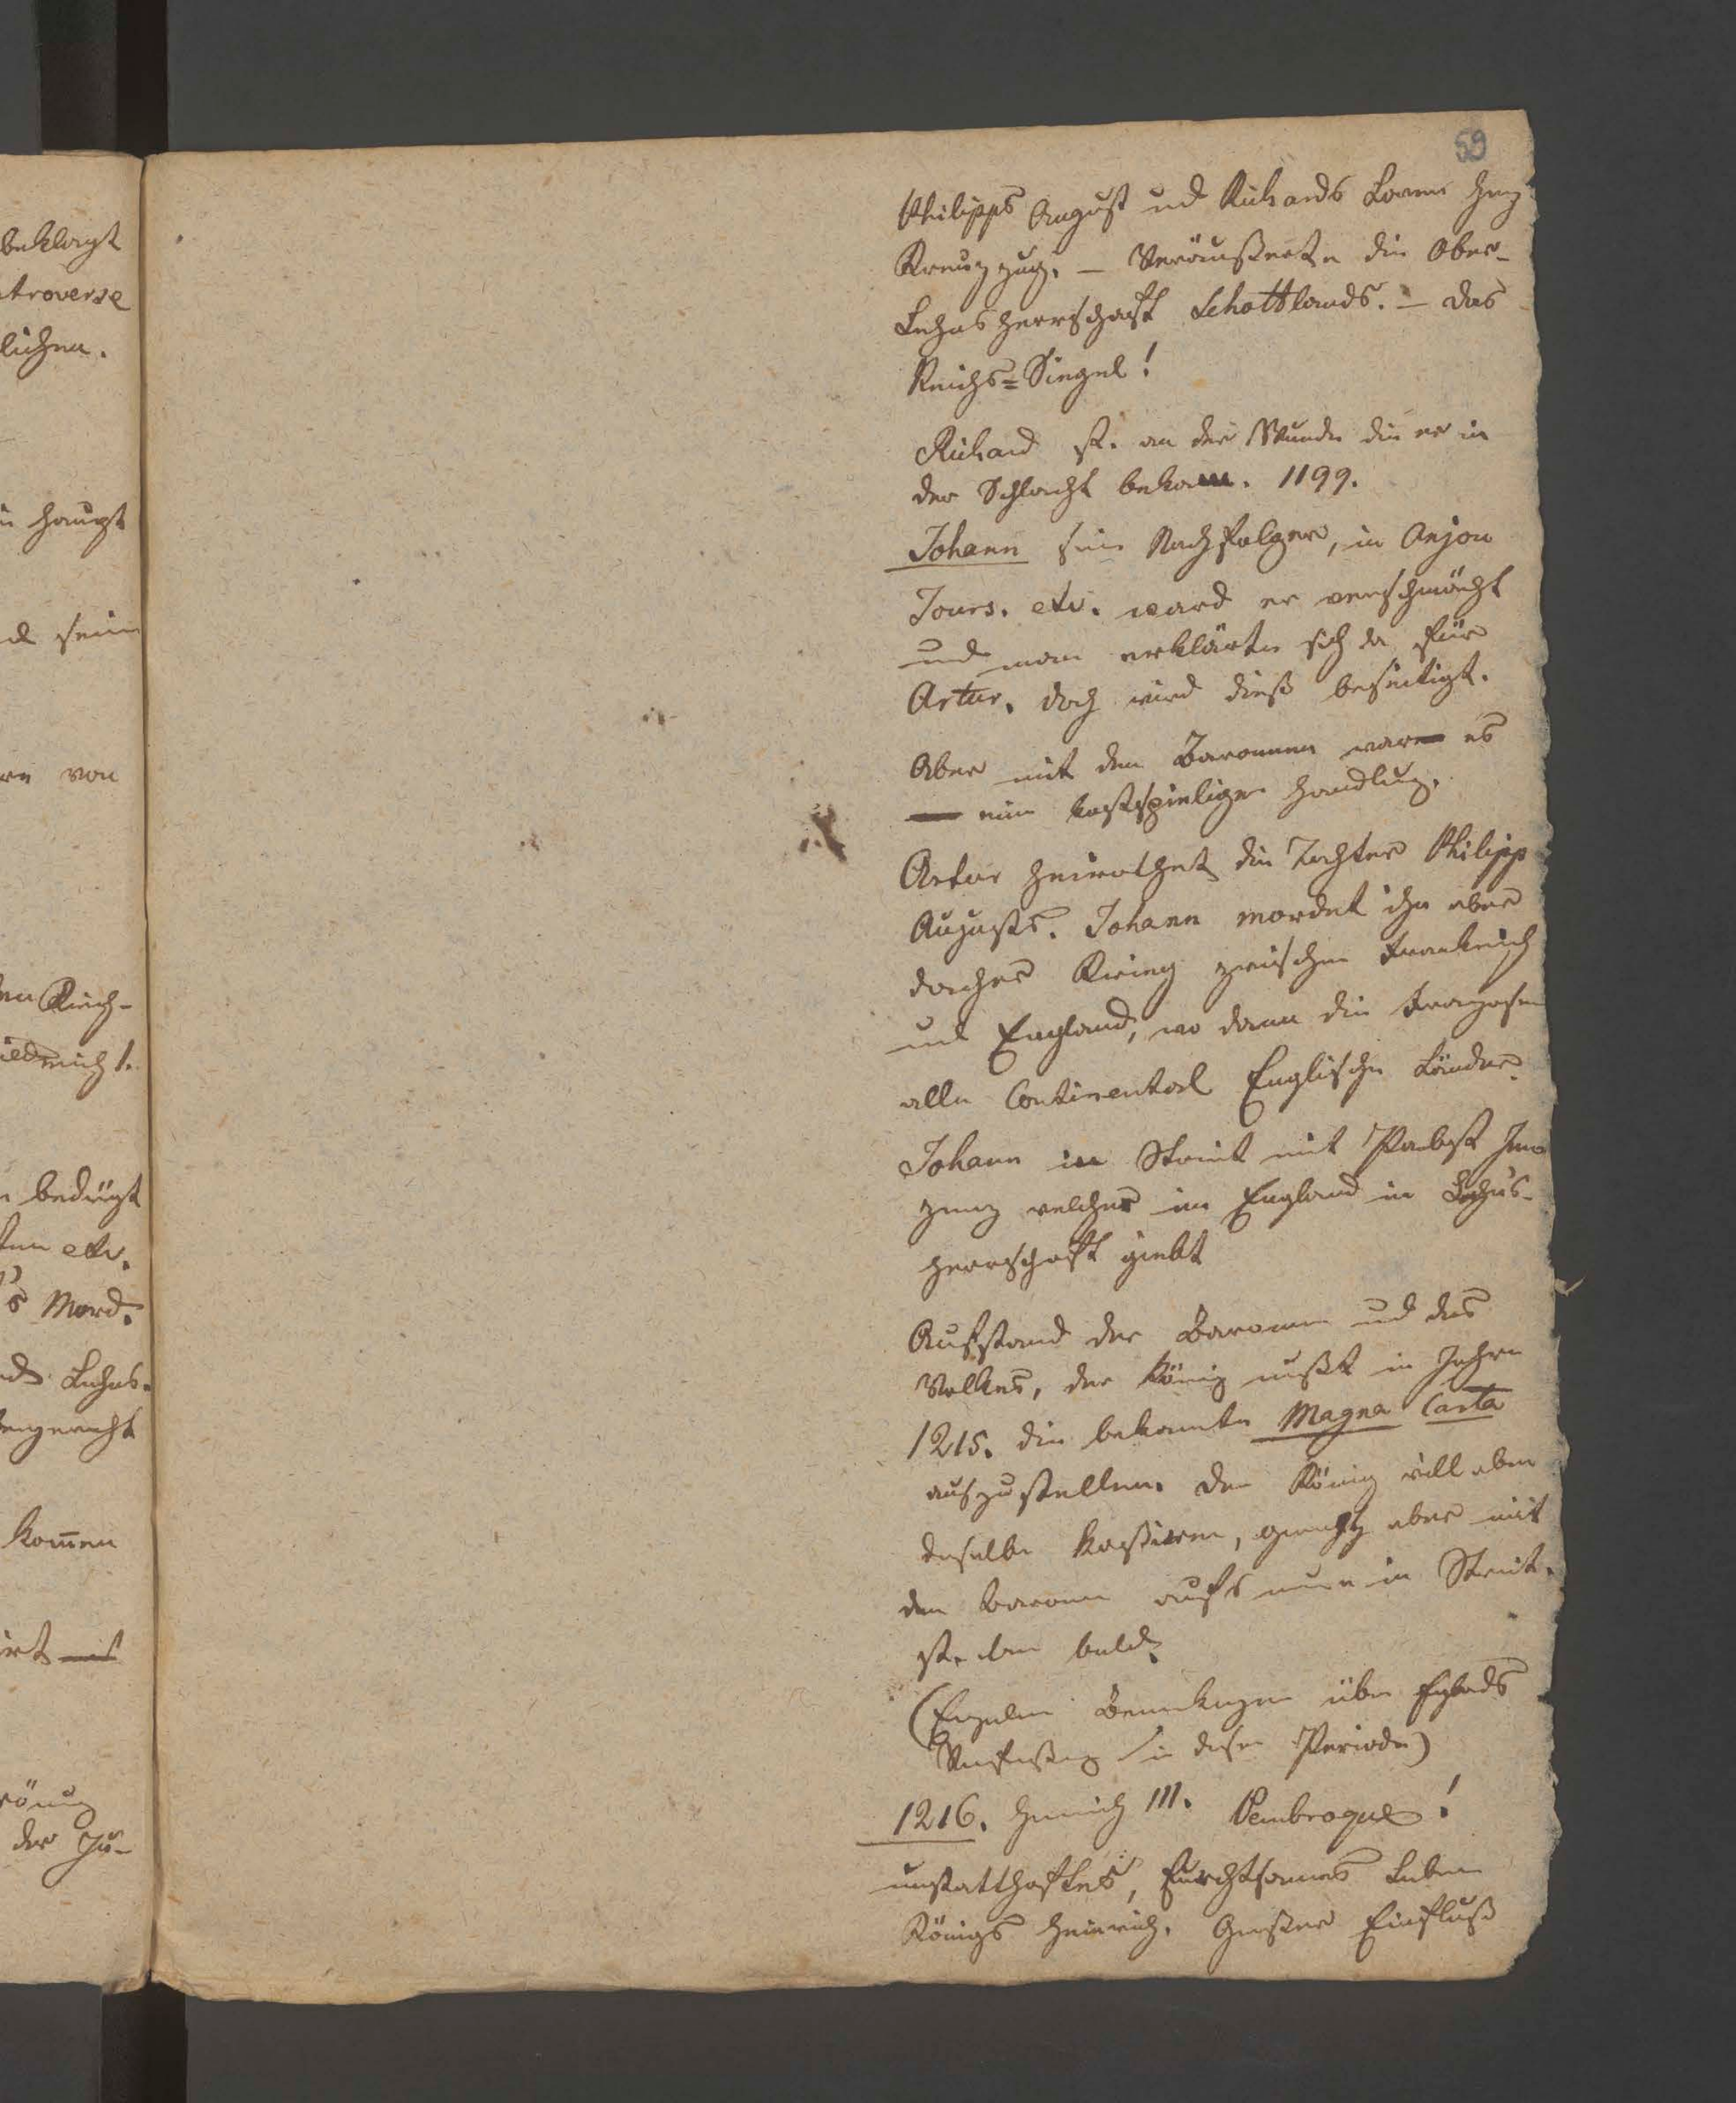 59
Philipps August und Richards Löwenherz
Kreuzzug. — Veräußerte die Ober-
Lehnsherrschaft Schottlands. — das
Reichs=Siegel!
Richard st. an der Wunde die er in
der Schlacht bekam. 1199.
Johann sein Nachfolger, in Anjou
Tours. etc. ward er verschmäht
und man erklärte sich da für
Artur. doch wird dieß beseitigt.
Aber mit den Baronnen war es
eine kostspielige Handlung.
Artur heirathet die Tochter Philipp
Augusts. Johann mordet ihn aber
daher Krieg zwischen Frankreich
und England, wo dann die Franzosen
alle Continental Englische Länder.
Johann in Streit mit Pabst Inno
zenz welcher im England in Lehns-
herrschaft giebt
Aufstand der Baronen und des
Volkes, der König mußt in Jahre
1215. die bekannte Magna Carta
auszustellen. Der König will aber
dieselbe kassieren, geräth aber mit
den Baronen aufs neue in Streit.
st. dan bald.
Bemerkungen über Englands
Verfassung in dieser Periode)
1216. Heinrich III. Pembroque!
unstatthaftes, furchtsames Leben
Königs Heinrich. Großer Einfluß
beklagt
troverse
lichen.
haupt
sein
von
Reich-
bedingt
etc.
's Mord.
Lehns.
kom̄en
der